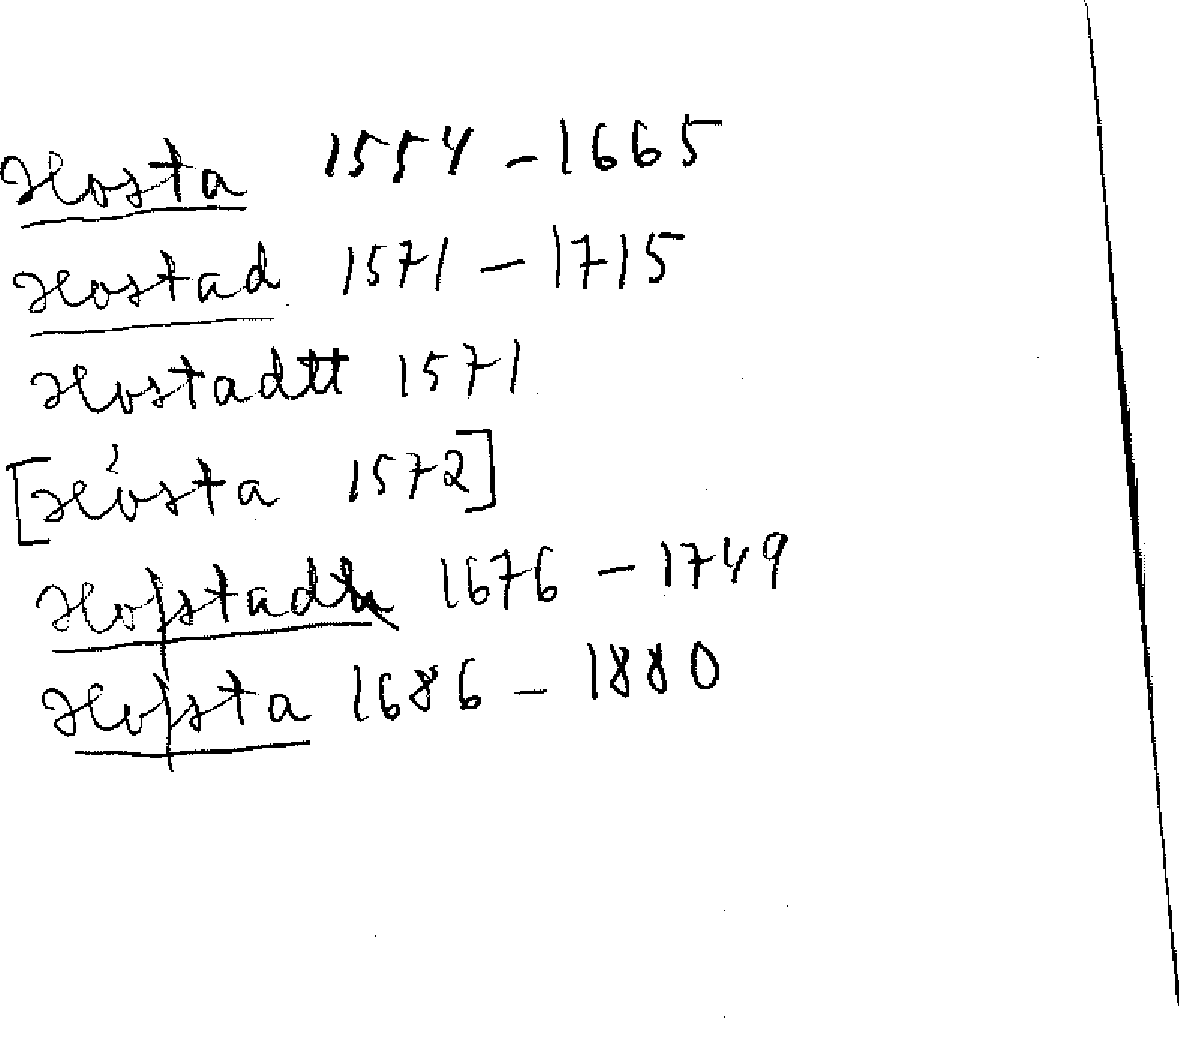 Hosta 1554 - 1665
Hostad 1571 - 1715
Hostadtt 1571
[Hósta 1572]
Hofstadh 1676 - 1749
Hofsta 1686 - 1880